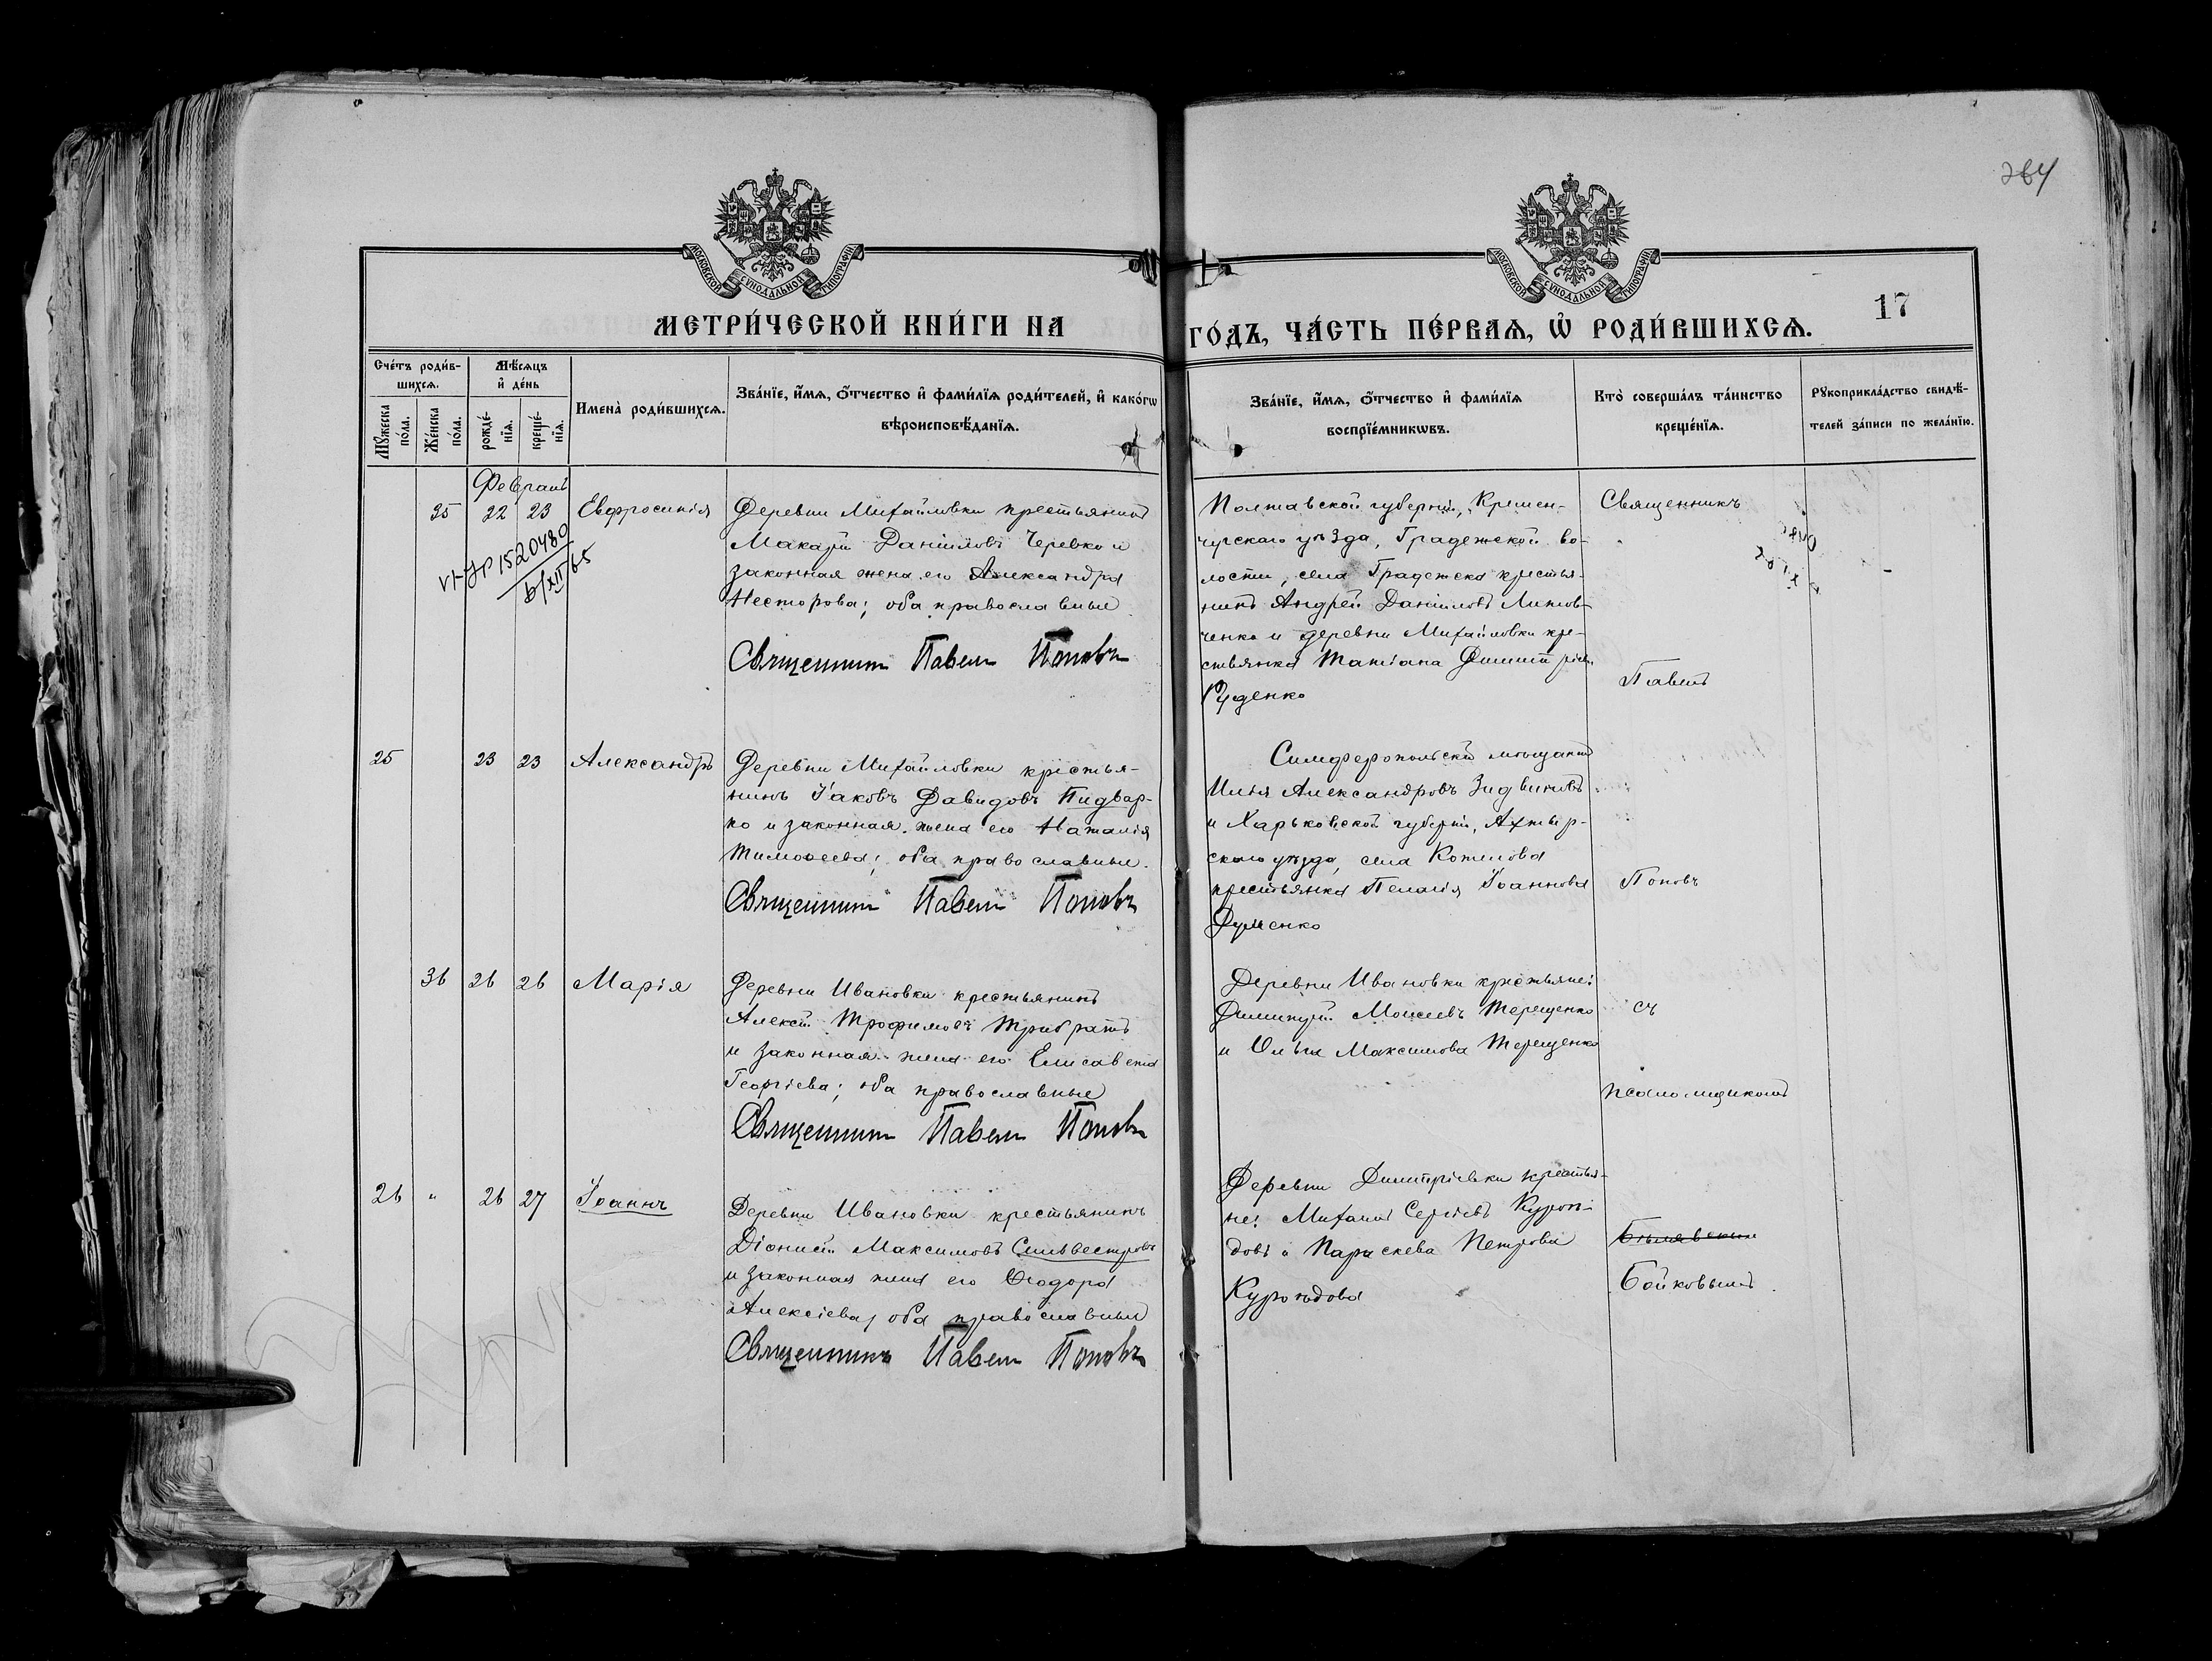 264
МОСКОВСКОЙ СѴНОДАЛЬНОЙ ТИПОГРАФІИ
МОСКОВСКОЙ СѴНОДАЛЬНОЙ ТИПОГРАФІИ
МЕТРИ́ЧЕСКОЙ КНИ́ГИ НА
ГО́ДЪ, ЧА́СТЬ ПЕ́РВАѦ, Ѡ҆ РОДИ́ВШИХСѦ.
17
Сче́тъ роди́в-
шихсѧ.
Мѣ́сѧцъ
и҆ де́нь
Мꙋ́жеска
по́ла.
Же́нска
по́ла.
рожде́-
нїѧ.
креще́-
нїѧ.
Имена̀ роди́вшихсѧ.
Зва́нїе, и҆́мѧ, ѻ҆́тчество и҆ фами́лїѧ роди́телей, и҆ како́гѡ
вѣроисповѣ́данїѧ.
Зва́нїе, и҆́мѧ, ѻ҆́тчество и҆ фами́лїѧ
воспрїе́мникѡвъ.
Кто̀ соверша́лъ та́инство
креще́нїѧ.
Рꙋкоприкла́дство свидѣ́-
телей за́писи по жела́нїю.
Февраль
35 22 23 Евфросинія
1520480
6/XII 65
Деревни Михайловки крестьянинъ
Макарій Даніиловъ Черевко и
законная жена его Александра
Несторова; оба православные
Священникъ Павелъ Поповъ
Полтавской губерніи, Кремен-
чугскаго уѣзда, Градежской во-
лости, села Градежска крестья-
нинъ Андрей Даніиловъ Литов-
ченко и деревни Михайловки кре-
стьянка Татіана Димитріева
Руденко
Священникъ
Павелъ
25 23 23 Александръ
Деревни Михайловки крестья-
нинъ Іаковъ Давидовъ Пидвар-
ко и законная жена его Наталія
Тимоѳеева; оба православные.
Священникъ Павелъ Поповъ
Симферопольскій мѣщанинъ
Илья Александровъ
и Харьковской губерніи, Ахтыр-
скаго уѣзда, села Котелова
крестьянка Пелагія Іоаннова
Думенко
Поповъ
36 26 26 Марія
Деревни Ивановки крестьянинъ
Алексій Трофимовъ Трибратъ
и законная жена его Елисавета
Георгіева; оба православные
Священникъ Павелъ Поповъ
Деревни Ивановки крестьяне:
Димитрій Моисеевъ Терещенко
и Ольга Максимова Терещенко
съ
псаломщикомъ
26 " 26 27 Іоаннъ
Деревни Ивановки крестьянинъ
Діонисій Максимовъ Сильвестровъ
и законная жена его Ѳеодора
Алексіева, оба православные
Священникъ Павелъ Поповъ
Деревни Димитріевки крестья-
не: Михаилъ Сергіевъ Куроѣ-
довъ и Параскева Петрова
Куроѣдова
Бойковымъ